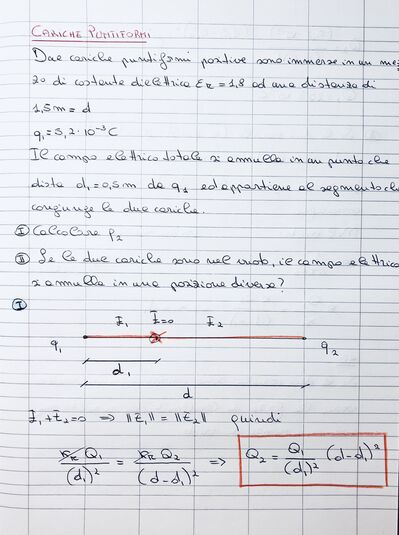 CARICHE PUNTIFORMI
Due cariche puntiformi positive sono immerse in un mez
zo di costante dielettrica εR = 1,8 ad una distanza di
1,5m = d
q1 = 3,2·10⁻³C
Il campo elettrico totale si annulla in un punto che
dista d1 = 0,5m da q1 ed appartiene al segmento che
congiunge le due cariche.
I Calcolare q2
II Se le due cariche sono nel vuoto, il campo elettrico
si annulla in una posizione diversa?
I
E1 E=0 E2
q1 q2
d1
d
E1 + E2 = 0 => ||E1|| = ||E2|| quindi
Q1/(d1)² = Q2/(d-d1)² => Q2 = Q1/(d1)² (d-d1)²